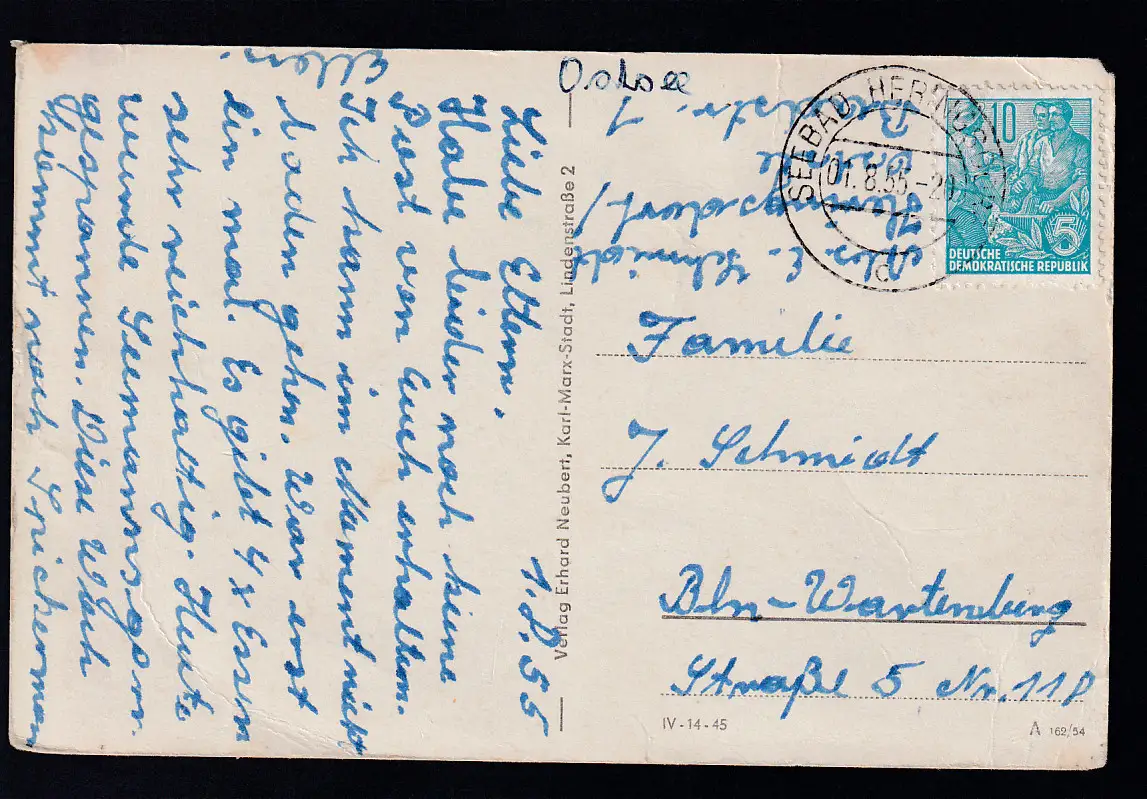 Ostsee
1.8.55
Liebe Eltern,
Habe leider noch keine
Post von Euch erhalten.
Ich kann im Moment nicht
baden gehen. War erst
ein mal. Es gibt 4x Essen
sehr reichhaltig. Heute
wurde Seemannsgarn
gesponnen. Diese Woche
kommt noch
Ellen.
Verlag Erhard Neubert, Karl-Marx-Stadt, Lindenstraße 2
Abs. E. Schmidt
1
SEEBAD HERINGSDORF
01.8.55-20
d
10
5
DEUTSCHE
DEMOKRATISCHE REPUBLIK
Familie
J. Schmidt
Bln-Wartenburg
Straße 5 Nr. 118
IV-14-45
A 162/54